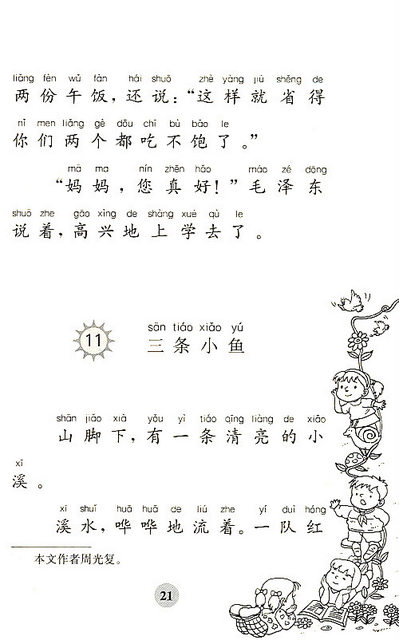 liǎng fèn wǔ fàn hái shuō zhè yàng jiù shěng de
两份午饭，还说：“这样就省得
nǐ men liǎng gè dōu chī bù bǎo le
你们两个都吃不饱了。”
mā ma nín zhēn hǎo máo zé dōng
“妈妈，您真好！”毛泽东
shuō zhe gāo xìng de shàng xué qù le
说着，高兴地上学去了。
11
sān tiáo xiǎo yú
三条小鱼
shān jiǎo xià yǒu yì tiáo qīng liàng de xiǎo
山脚下，有一条清亮的小
xī
溪。
xī shuǐ huā huā de liú zhe yí duì hóng
溪水，哗哗地流着。一队红
本文作者周光复。
21